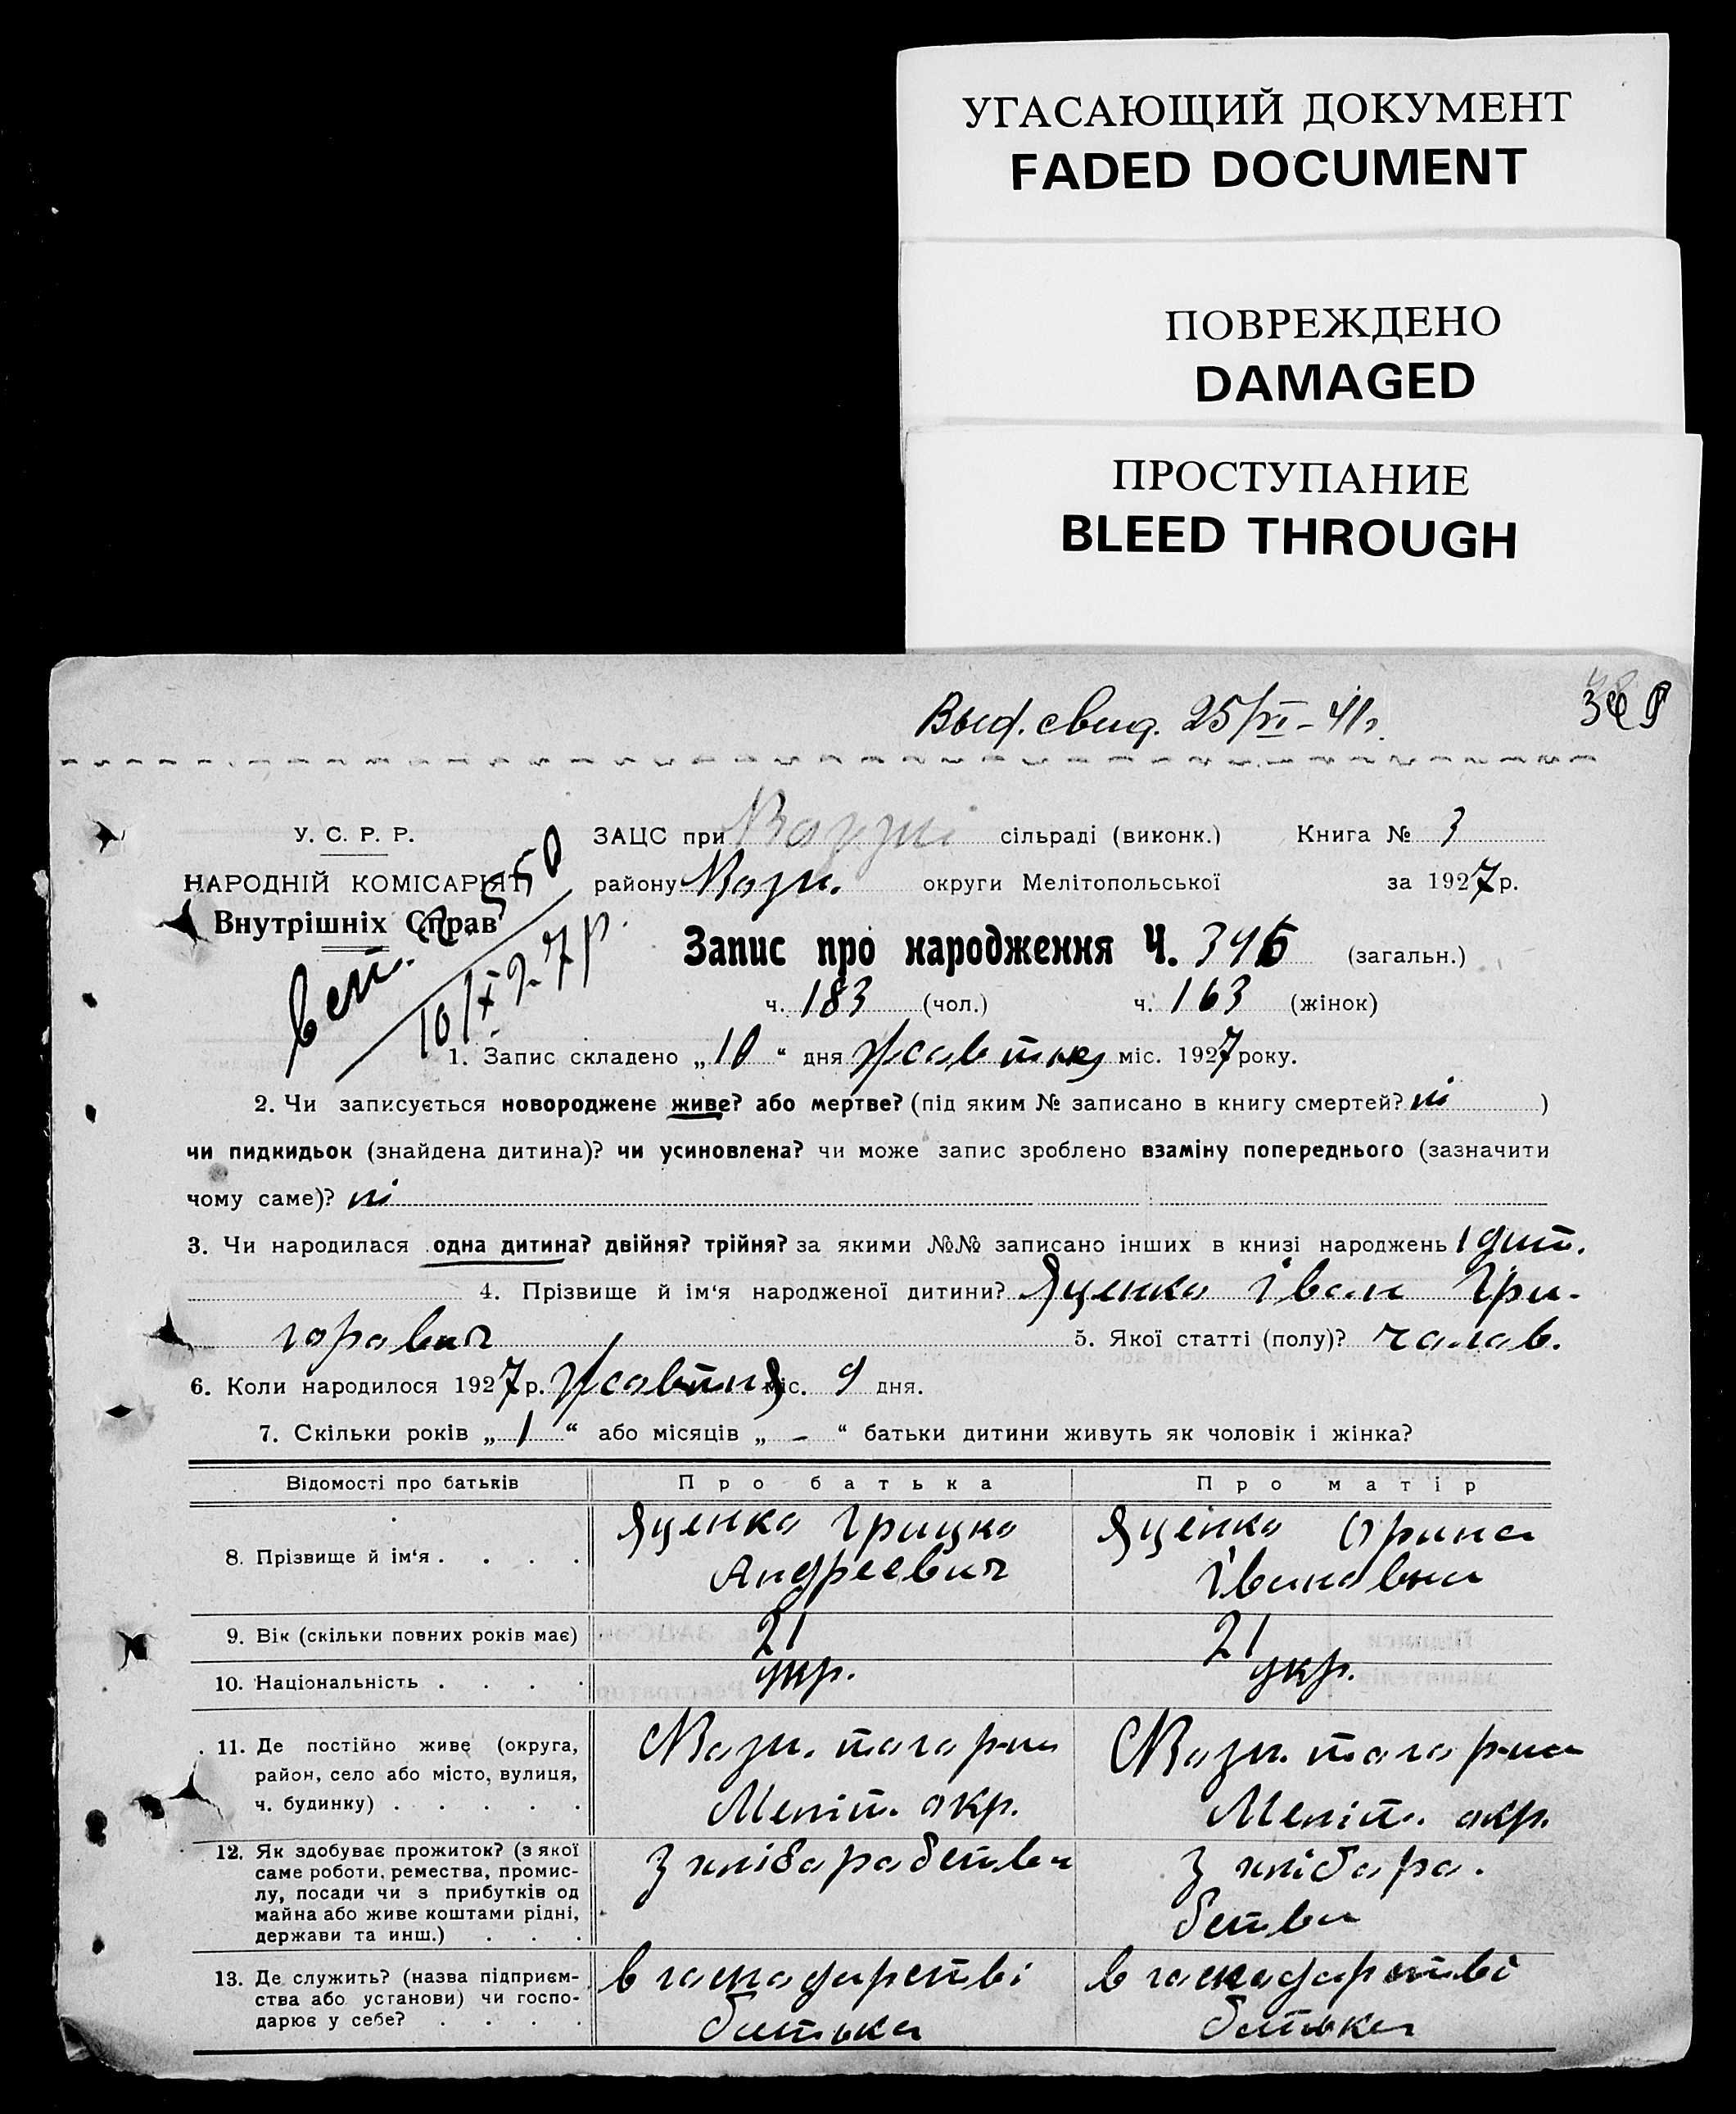 УГАСАЮЩИЙ ДОКУМЕНТ
FADED DOCUMENT
ПОВРЕЖДЕНО
DAMAGED
ПРОСТУПАНИЕ
BLEED THROUGH
Выд. свид. 25/VI-41г.
У. С. Р. Р.
НАРОДНІЙ КОМІСАРІЯТ
Внутрішніх Справ
10/X 27р.
ЗАЦС при сільраді (виконк.) Книга № 3
району Возн. округи Мелітопольської за 1927 р.
Запис про народження Ч. 346 (загальн.)
ч. 183 (чол.) ч. 163 (жінок)
1. Запис складено „10“ дня жовтня міс. 1927 року.
2. Чи записується новороджене живе? або мертве? (під яким № записано в книгу смертей? ні )
чи пидкидьок (знайдена дитина)? чи усиновлена? чи може запис зроблено взаміну попереднього (зазначити
чому саме)? ні
3. Чи народилася одна дитина? двійня? трійня? за якими №№ записано інших в книзі народжень 1 дит.
4. Прізвище й ім‘я народженої дитини? Яценко Іван Гри-
горович 5. Якої статті (полу)? чолов.
6. Коли народилося 1927 р. жовтня міс. 9 дня.
7. Скільки років „ 1 “ або місяців „ - “ батьки дитини живуть як чоловік і жінка?
Відомості про батьків Про батька Про матір
8. Прізвище й ім‘я . . . . Яценко Грицко Андреевич Яценко Орина Івановна
9. Вік (скільки повних років має) 21 21
10. Національність . . . . укр. укр.
11. Де постійно живе (округа, район, село або місто, вулиця, ч. будинку) . . . . . Возн. того р-ну Меліт. окр. Возн. того р-на Меліт. окр.
12. Як здобуває прожиток? (з якої саме роботи, ремества, промислу, посади чи з прибутків од майна або живе коштами рідні, держави та инш.) . . . З хліборобства З хлібороб-
ства
13. Де служить? (назва підприємства або установи) чи господарює у себе? . . . . В господарстві батька В господарстві батька